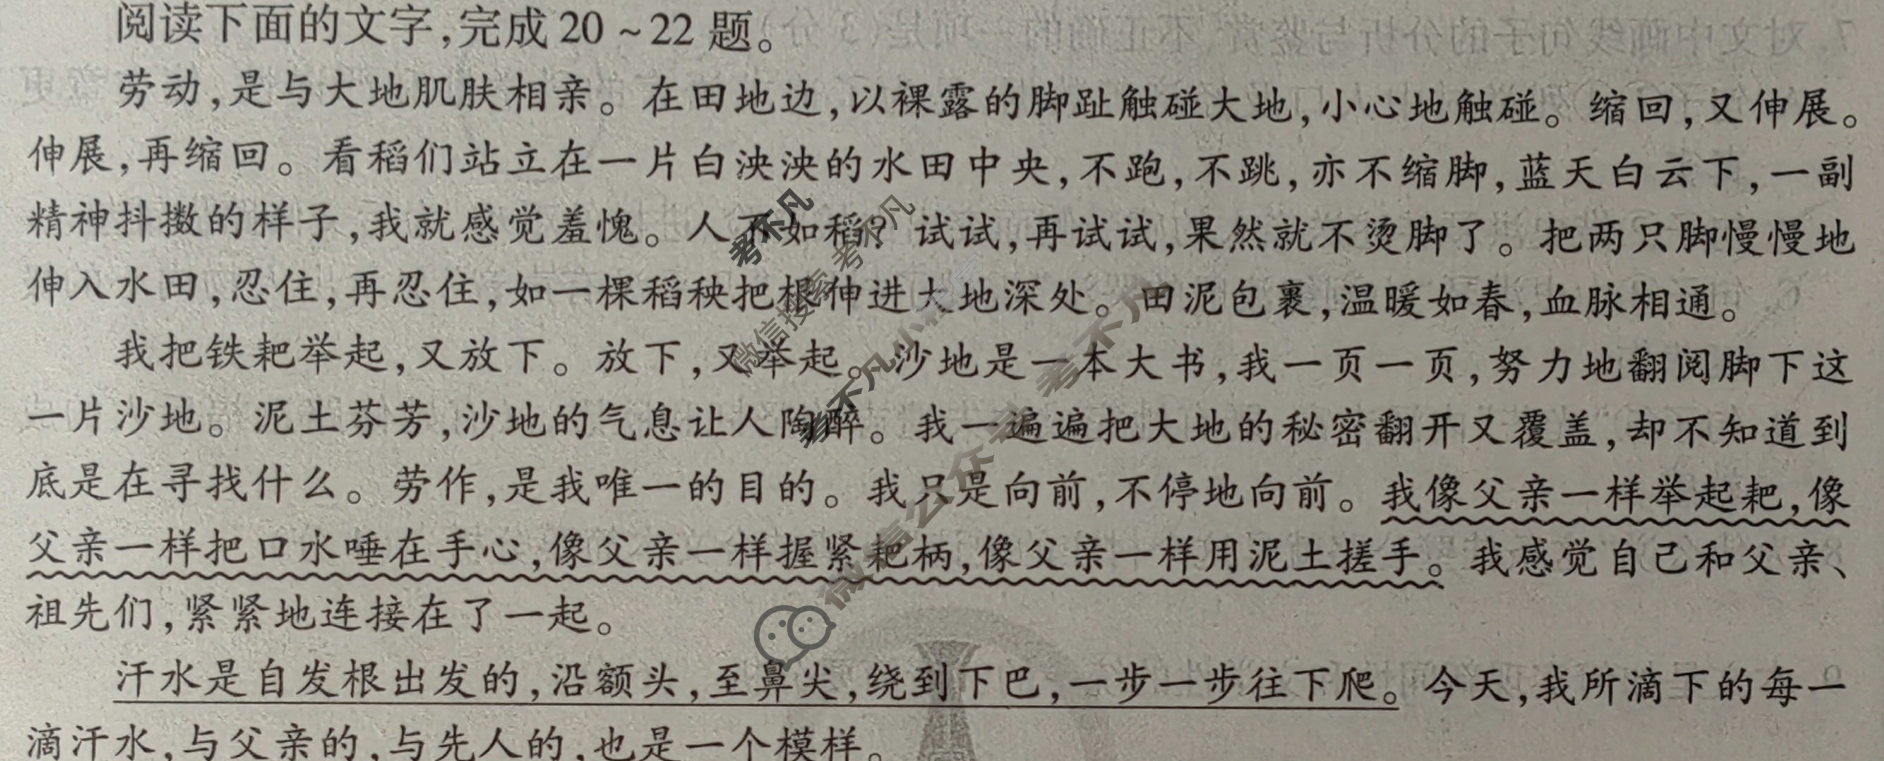 阅读下面的文字,完成20~22题。
劳动,是与大地肌肤相亲。在田地边,以裸露的脚趾触碰大地,小心地触碰。缩回,又伸展。
伸展,再缩回。看稻们站立在一片白泱泱的水田中央,不跑,不跳,亦不缩脚,蓝天白云下,一副
精神抖擞的样子,我就感觉羞愧。人不如稻?试试,再试试,果然就不烫脚了。把两只脚慢慢地
伸入水田,忍住,再忍住,如一棵稻秧把根伸进大地深处。田泥包裹,温暖如春,血脉相通。
我把铁耙举起,又放下。放下,又举起。沙地是一本大书,我一页一页,努力地翻阅脚下这
一片沙地。泥土芬芳,沙地的气息让人陶醉。我一遍遍把大地的秘密翻开又覆盖,却不知道到
底是在寻找什么。劳作,是我唯一的目的。我只是向前,不停地向前。我像父亲一样举起耙,像
父亲一样把口水唾在手心,像父亲一样握紧耙柄,像父亲一样用泥土搓手。我感觉自己和父亲、
祖先们,紧紧地连接在了一起。
汗水是自发根出发的,沿额头,至鼻尖,绕到下巴,一步一步往下爬。今天,我所滴下的每一
滴汗水,与父亲的,与先人的,也是一个模样。
考不凡
微信搜索 考不凡
考不凡小
微信公众号 考不凡